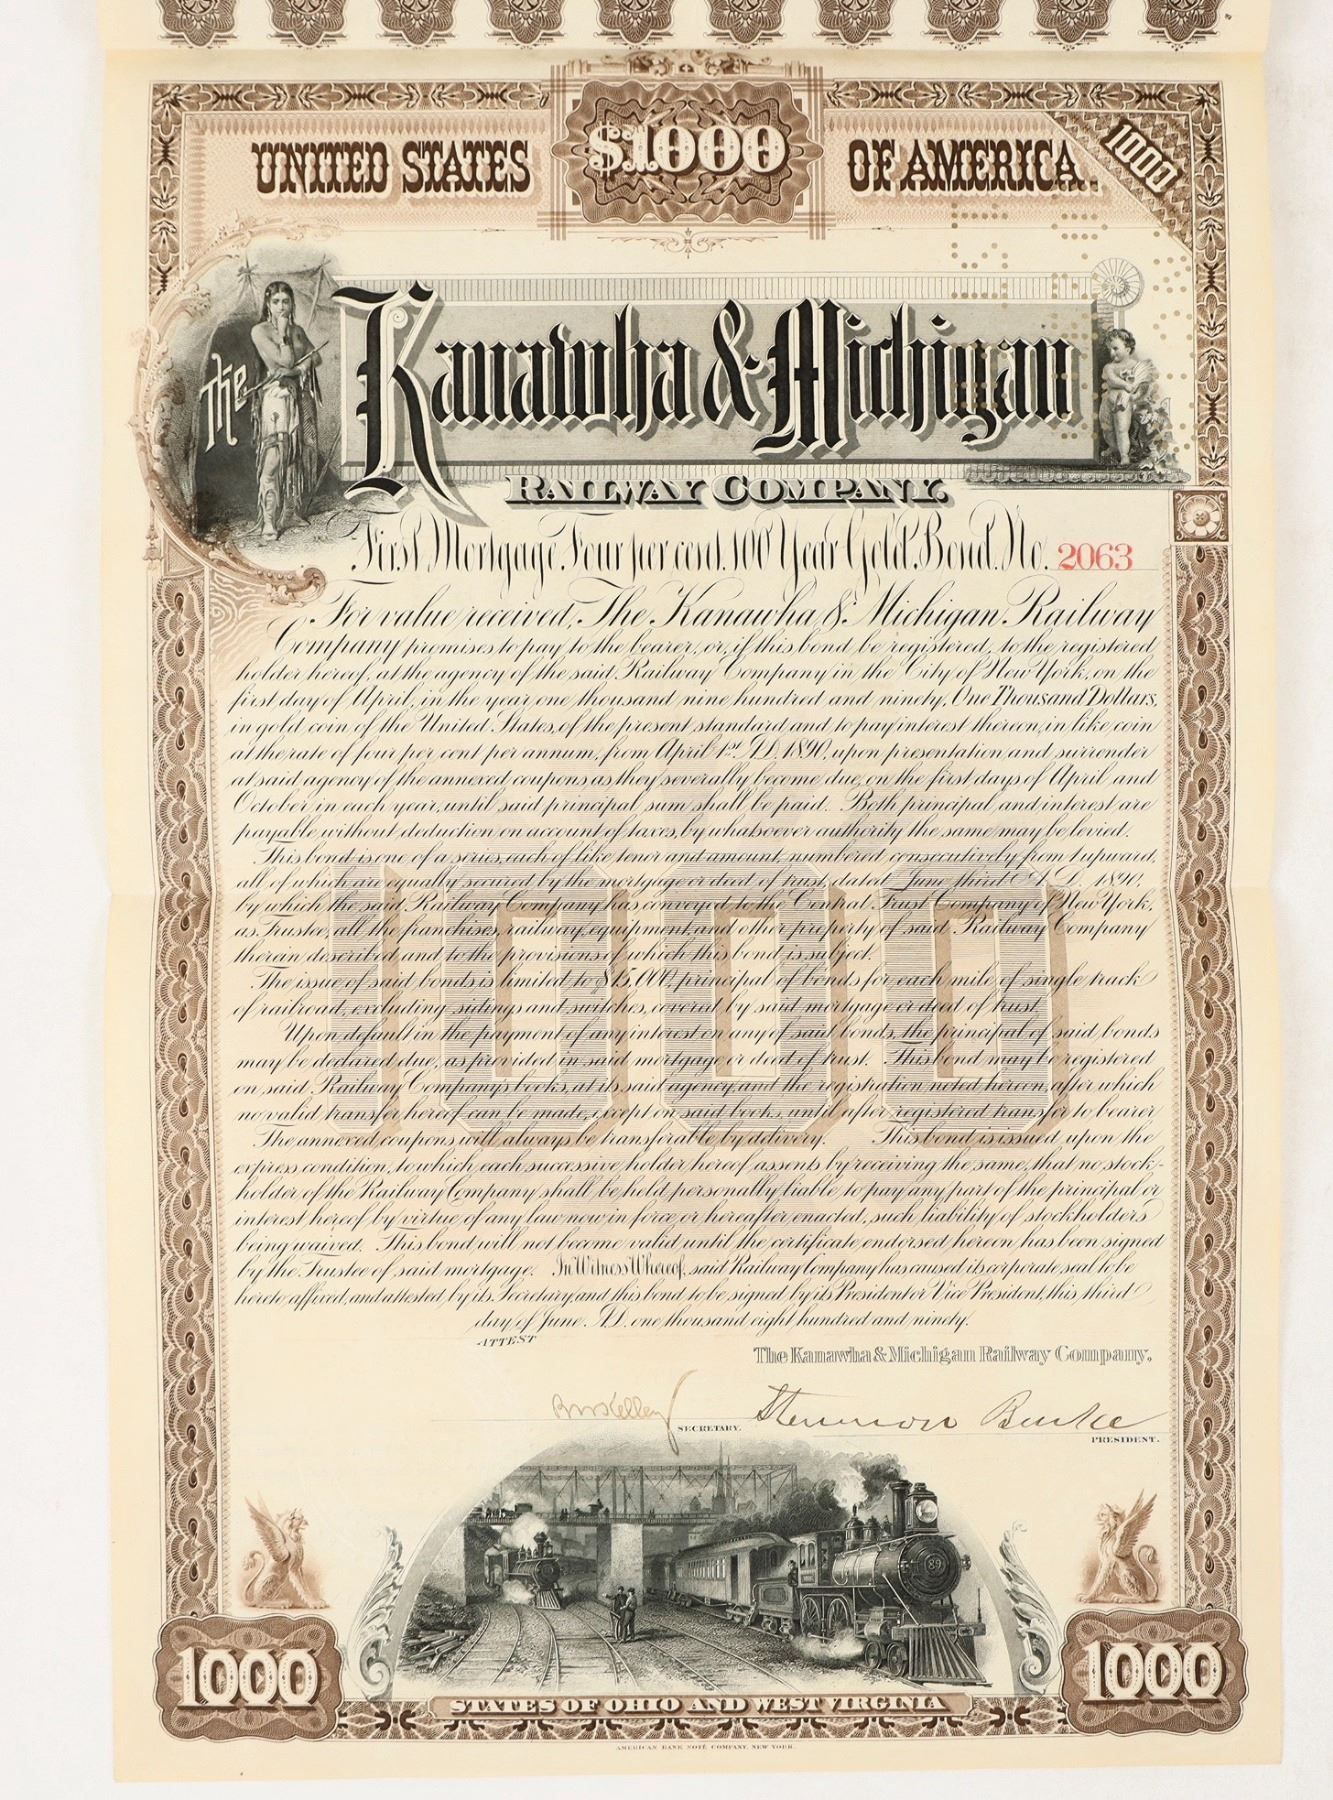 UNITED STATES $1000 OF AMERICA
1000
The Kanawha & Michigan
RAILWAY COMPANY.
First Mortgage Four per cent. 100 Year Gold Bond. No. 2063
For value received, The Kanawha & Michigan Railway
Company promises to pay to the bearer, or, if this bond be registered, to the registered
holder hereof, at the agency of the said Railway Company in the City of New York, on the
first day of April, in the year one thousand nine hundred and ninety, One Thousand Dollars,
in gold coin of the United States, of the present standard, and to pay interest thereon, in like coin
at the rate of four per cent per annum, from April 1st A.D. 1890, upon presentation and surrender
at said agency of the annexed coupons as they severally become due, on the first days of April and
October in each year, until said principal sum shall be paid. Both principal and interest are
payable without deduction on account of taxes, by whatsoever authority the same may be levied.
This bond is one of a series, each of like tenor and amount, numbered consecutively from 1 upward,
all of which are equally secured by the mortgage or deed of trust, dated June third A.D. 1890,
by which the said Railway Company has conveyed to the Central Trust Company of New York,
as Trustee, all the franchises, railway, equipment, and other property of said Railway Company
therein described and to the provisions of which this bond is subject.
The issue of said bonds is limited to $15,000, principal of bonds for each mile of single track
of railroad, excluding sidings and switches, covered by said mortgage or deed of trust.
Upon default in the payment of any interest on any of said bonds, the principal of said bonds
may be declared due, as provided in said mortgage or deed of trust. This bond may be registered
on said Railway Company's books, at its said agency, and the registration noted hereon, after which
no valid transfer hereof can be made, except on said books, until after registered transfer to bearer
The annexed coupons will always be transferable by delivery. This bond is issued upon the
express condition, to which each successive holder hereof assents by receiving the same, that no stock-
holder of the Railway Company shall be held personally liable to pay any part of the principal or
interest hereof by virtue of any law now in force or hereafter enacted, such liability of stockholders
being waived. This bond will not become valid until the certificate endorsed hereon has been signed
by the Trustee of said mortgage. In Witness Whereof, said Railway Company has caused its corporate seal to be
hereto affixed, and attested by its Secretary, and this bond to be signed by its President or Vice President, this third
day of June A.D. one thousand eight hundred and ninety.
ATTEST
The Kanawha & Michigan Railway Company.
Kelley SECRETARY. Stevenson Burke
PRESIDENT.
89
1000 1000
STATES OF OHIO AND WEST VIRGINIA
AMERICAN BANK NOTE COMPANY, NEW YORK.